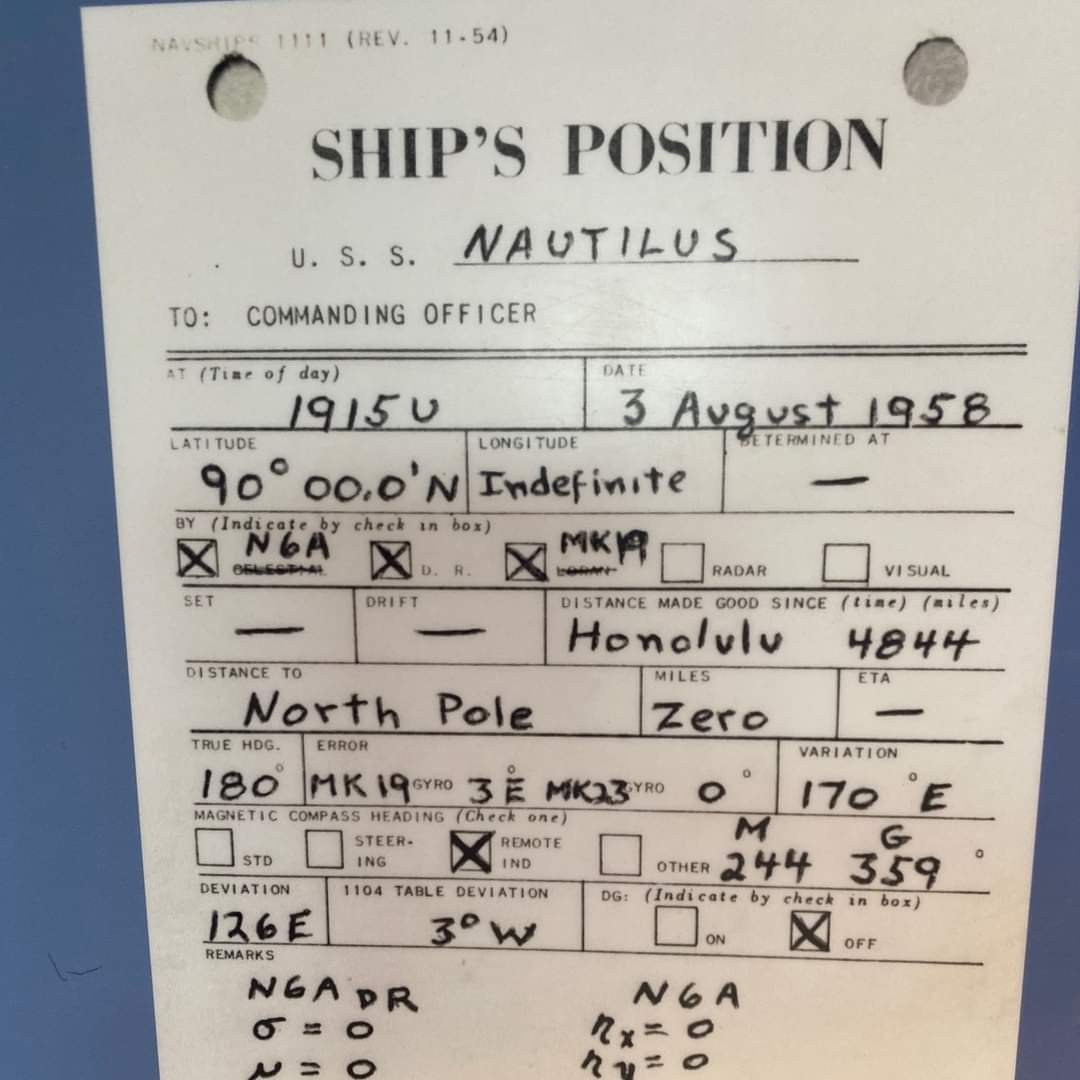 NAVSHIPS 1111 (REV. 11-54)
SHIP'S POSITION
U. S. S. NAUTILUS
TO: COMMANDING OFFICER
AT (Time of day) DATE
1915U 3 August 1958
LATITUDE LONGITUDE DETERMINED AT
90° 00.0'N Indefinite —
BY (Indicate by check in box)
N6A MK19
CELESTIAL D. R. LORAN RADAR VISUAL
SET DRIFT DISTANCE MADE GOOD SINCE (time) (miles)
— — Honolulu 4844
DISTANCE TO MILES ETA
North Pole Zero —
TRUE HDG. ERROR VARIATION
180° MK19 GYRO 3°E MK23 GYRO 0° 170°E
MAGNETIC COMPASS HEADING (Check one)
STD STEER-ING REMOTE IND OTHER M 244 G 359°
DEVIATION 1104 TABLE DEVIATION DG: (Indicate by check in box)
126E 3°W ON OFF
REMARKS
N6A DR N6A
σ = 0 ηx = 0
μ = 0 ηy = 0